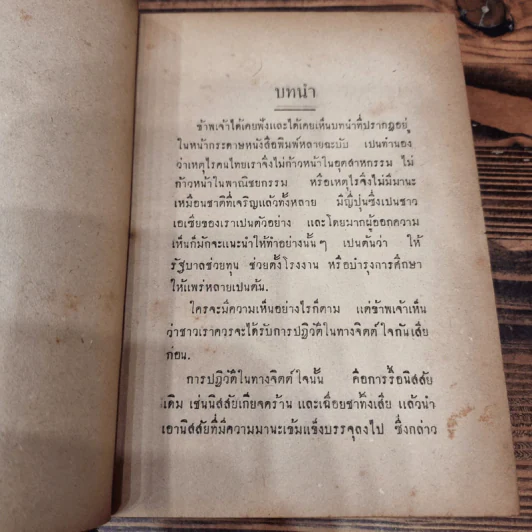 บทนำ
ข้าพะเจ้าได้เคยฟังและได้เคยเห็นบทนำที่ปรากฏอยู่
ในหน้ากระดาษหนังสือพิมพ์หลายฉะบับ เปนทำนอง
ว่าเหตุไรคนไทยเราจึ่งไม่ก้าวหน้าในอุตสาหกรรม ไม่
ก้าวหน้าในพาณิชยกรรม หรือเหตุไรจึ่งไม่มีมานะ
เหมือนชาติที่เจริญแล้วทั้งหลาย มียี่ปุ่นซึ่งเปนชาว
เอเซียของเราเปนตัวอย่าง และโดยมากผู้ออกความ
เห็นก็มักจะแนะนำให้ทำอย่างนั้น ๆ เปนต้นว่า ให้
รัฐบาลช่วยทุน ช่วยตั้งโรงงาน หรือบำรุงการศึกษา
ให้แพร่หลายเปนต้น.
ใครจะมีความเห็นอย่างไรก็ตาม แต่ข้าพเจ้าเห็น
ว่าชาวเราควรจะได้รับการปฏิวัติในทางจิตต์ใจกันเสีย
ก่อน.
การปฏิวัติในทางจิตต์ใจนั้น คือการรื้อนิสสัย
เดิม เช่นนิสสัยเกียจคร้าน และเฉื่อยชาทิ้งเสีย แล้วนำ
เอานิสสัยที่มีความมานะเข้มแข็งบรรจุลงไป ซึ่งกล่าว